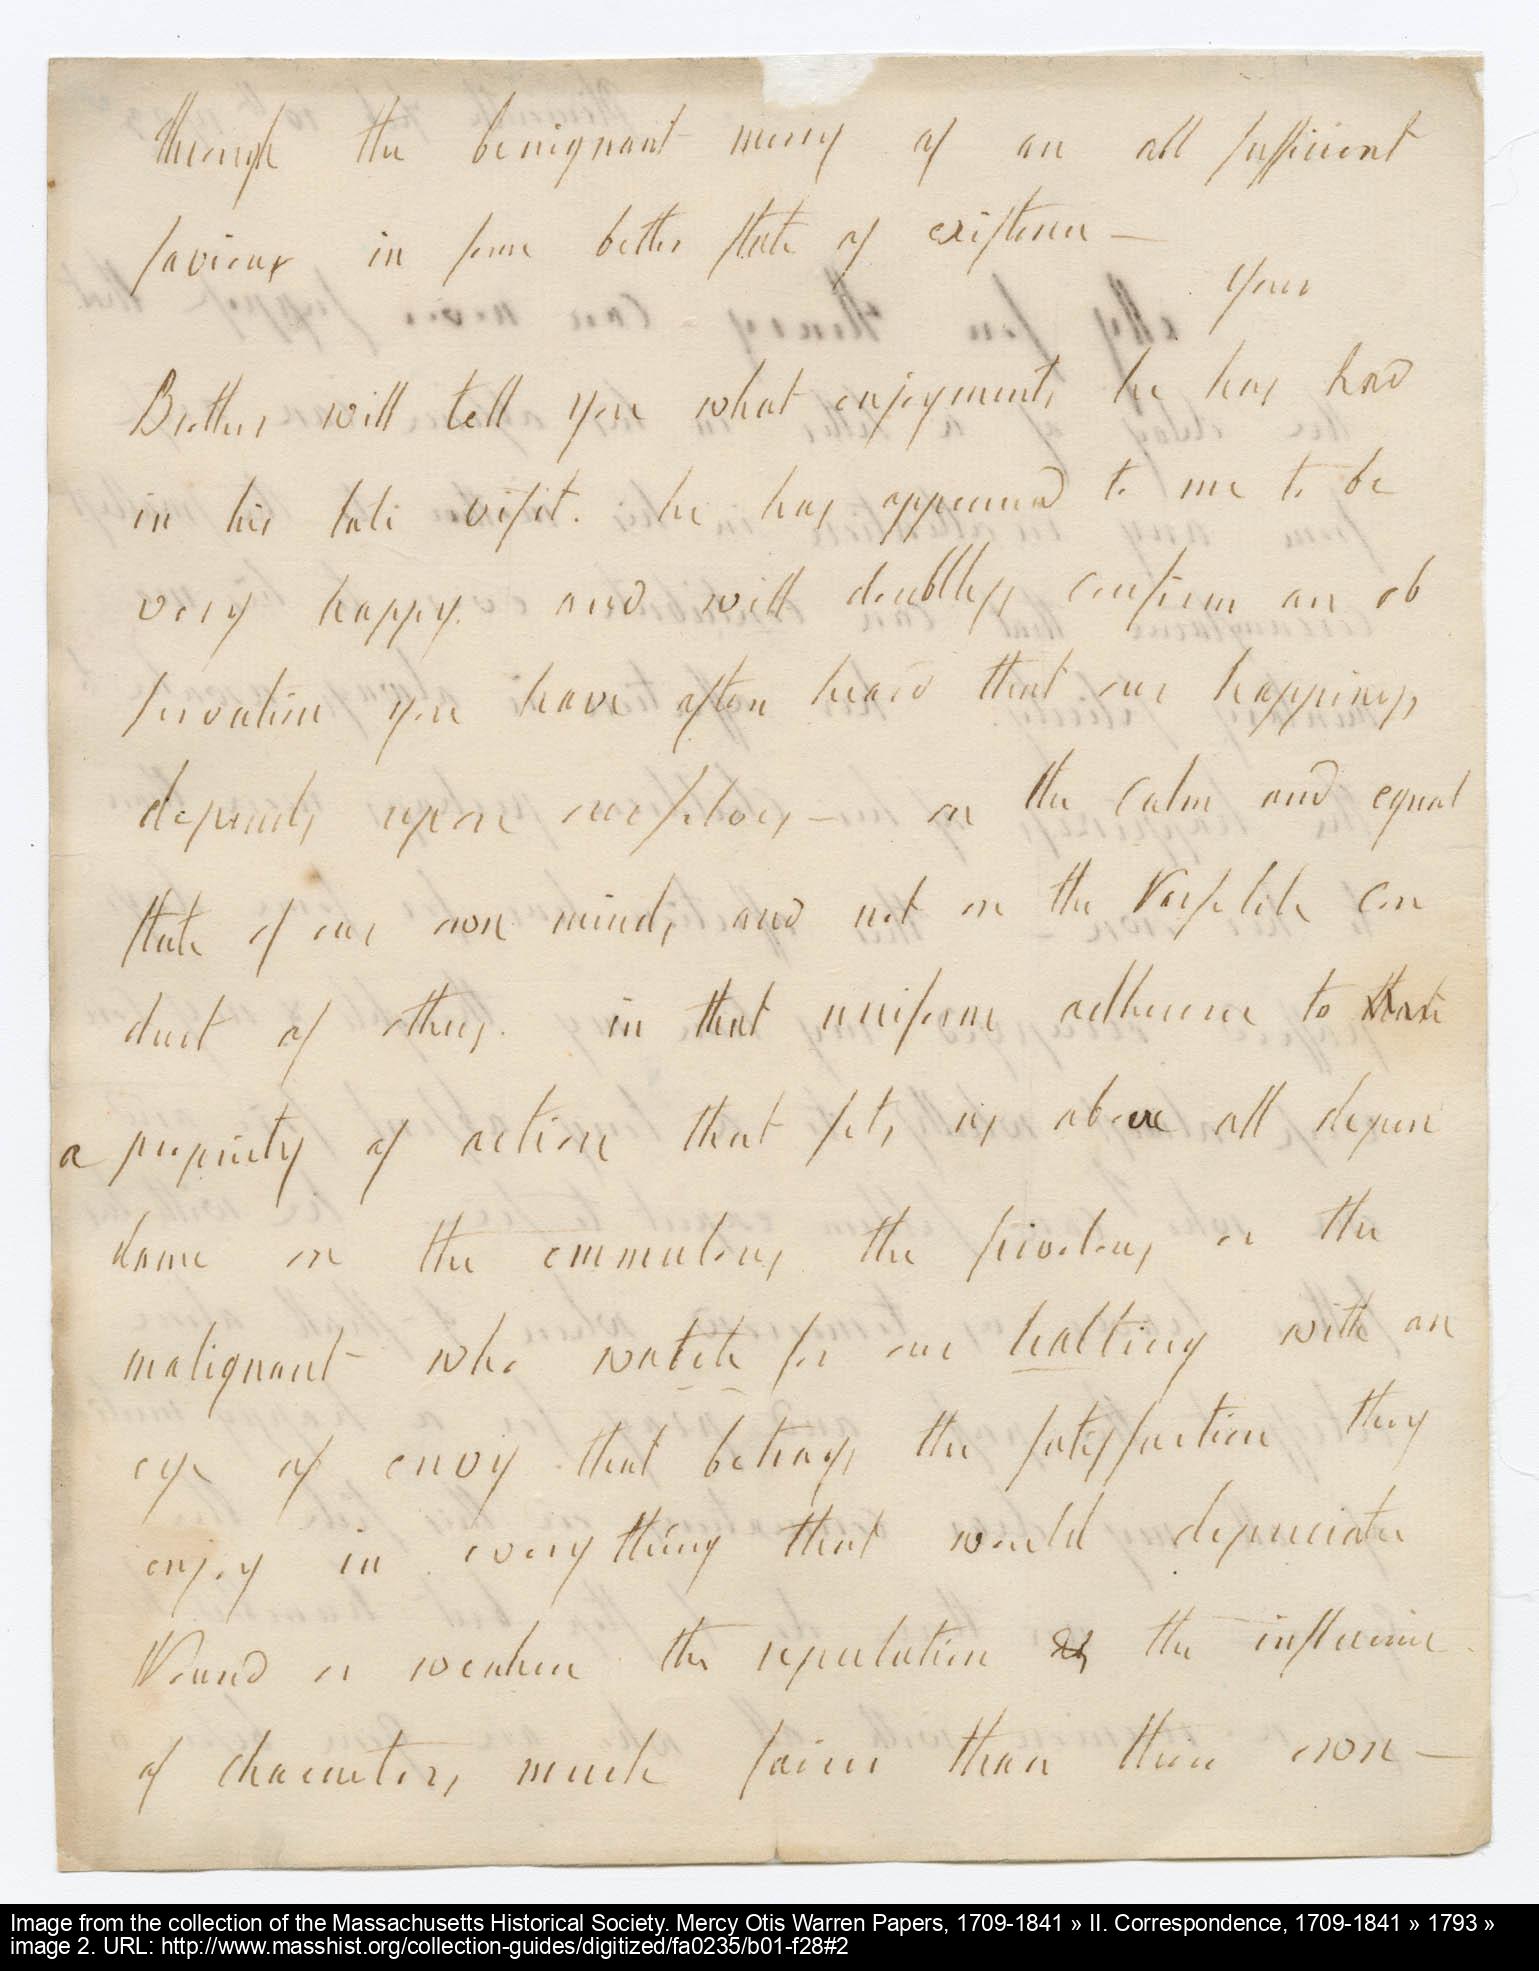 through the benignant mercy of an all sufficient
saviour in some better state of existence —
Your
Brother will tell you what enjoyments he has had
in his late visit. he has appeared to me to be
very happy. and will doubtless confirm an ob
servation you have often heard that our happiness
depends upon ourselves — on the calm and equal
state of our own minds and not on the Versatile con
duct of others. in that uniform adherence to
a propriety of action that sets us above all depen
dance on the the frivolous or the
malignant who watch for our halting with an
eye of envy that betrays the satisfaction they
enjoy in every thing that would depreciate
Wound or weaken the reputation the influence
of characters much fairer than their own —
Image from the collection of the Massachusetts Historical Society. Mercy Otis Warren Papers, 1709-1841 » II. Correspondence, 1709-1841 » 1793 »
image 2. URL: http://www.masshist.org/collection-guides/digitized/fa0235/b01-f28#2